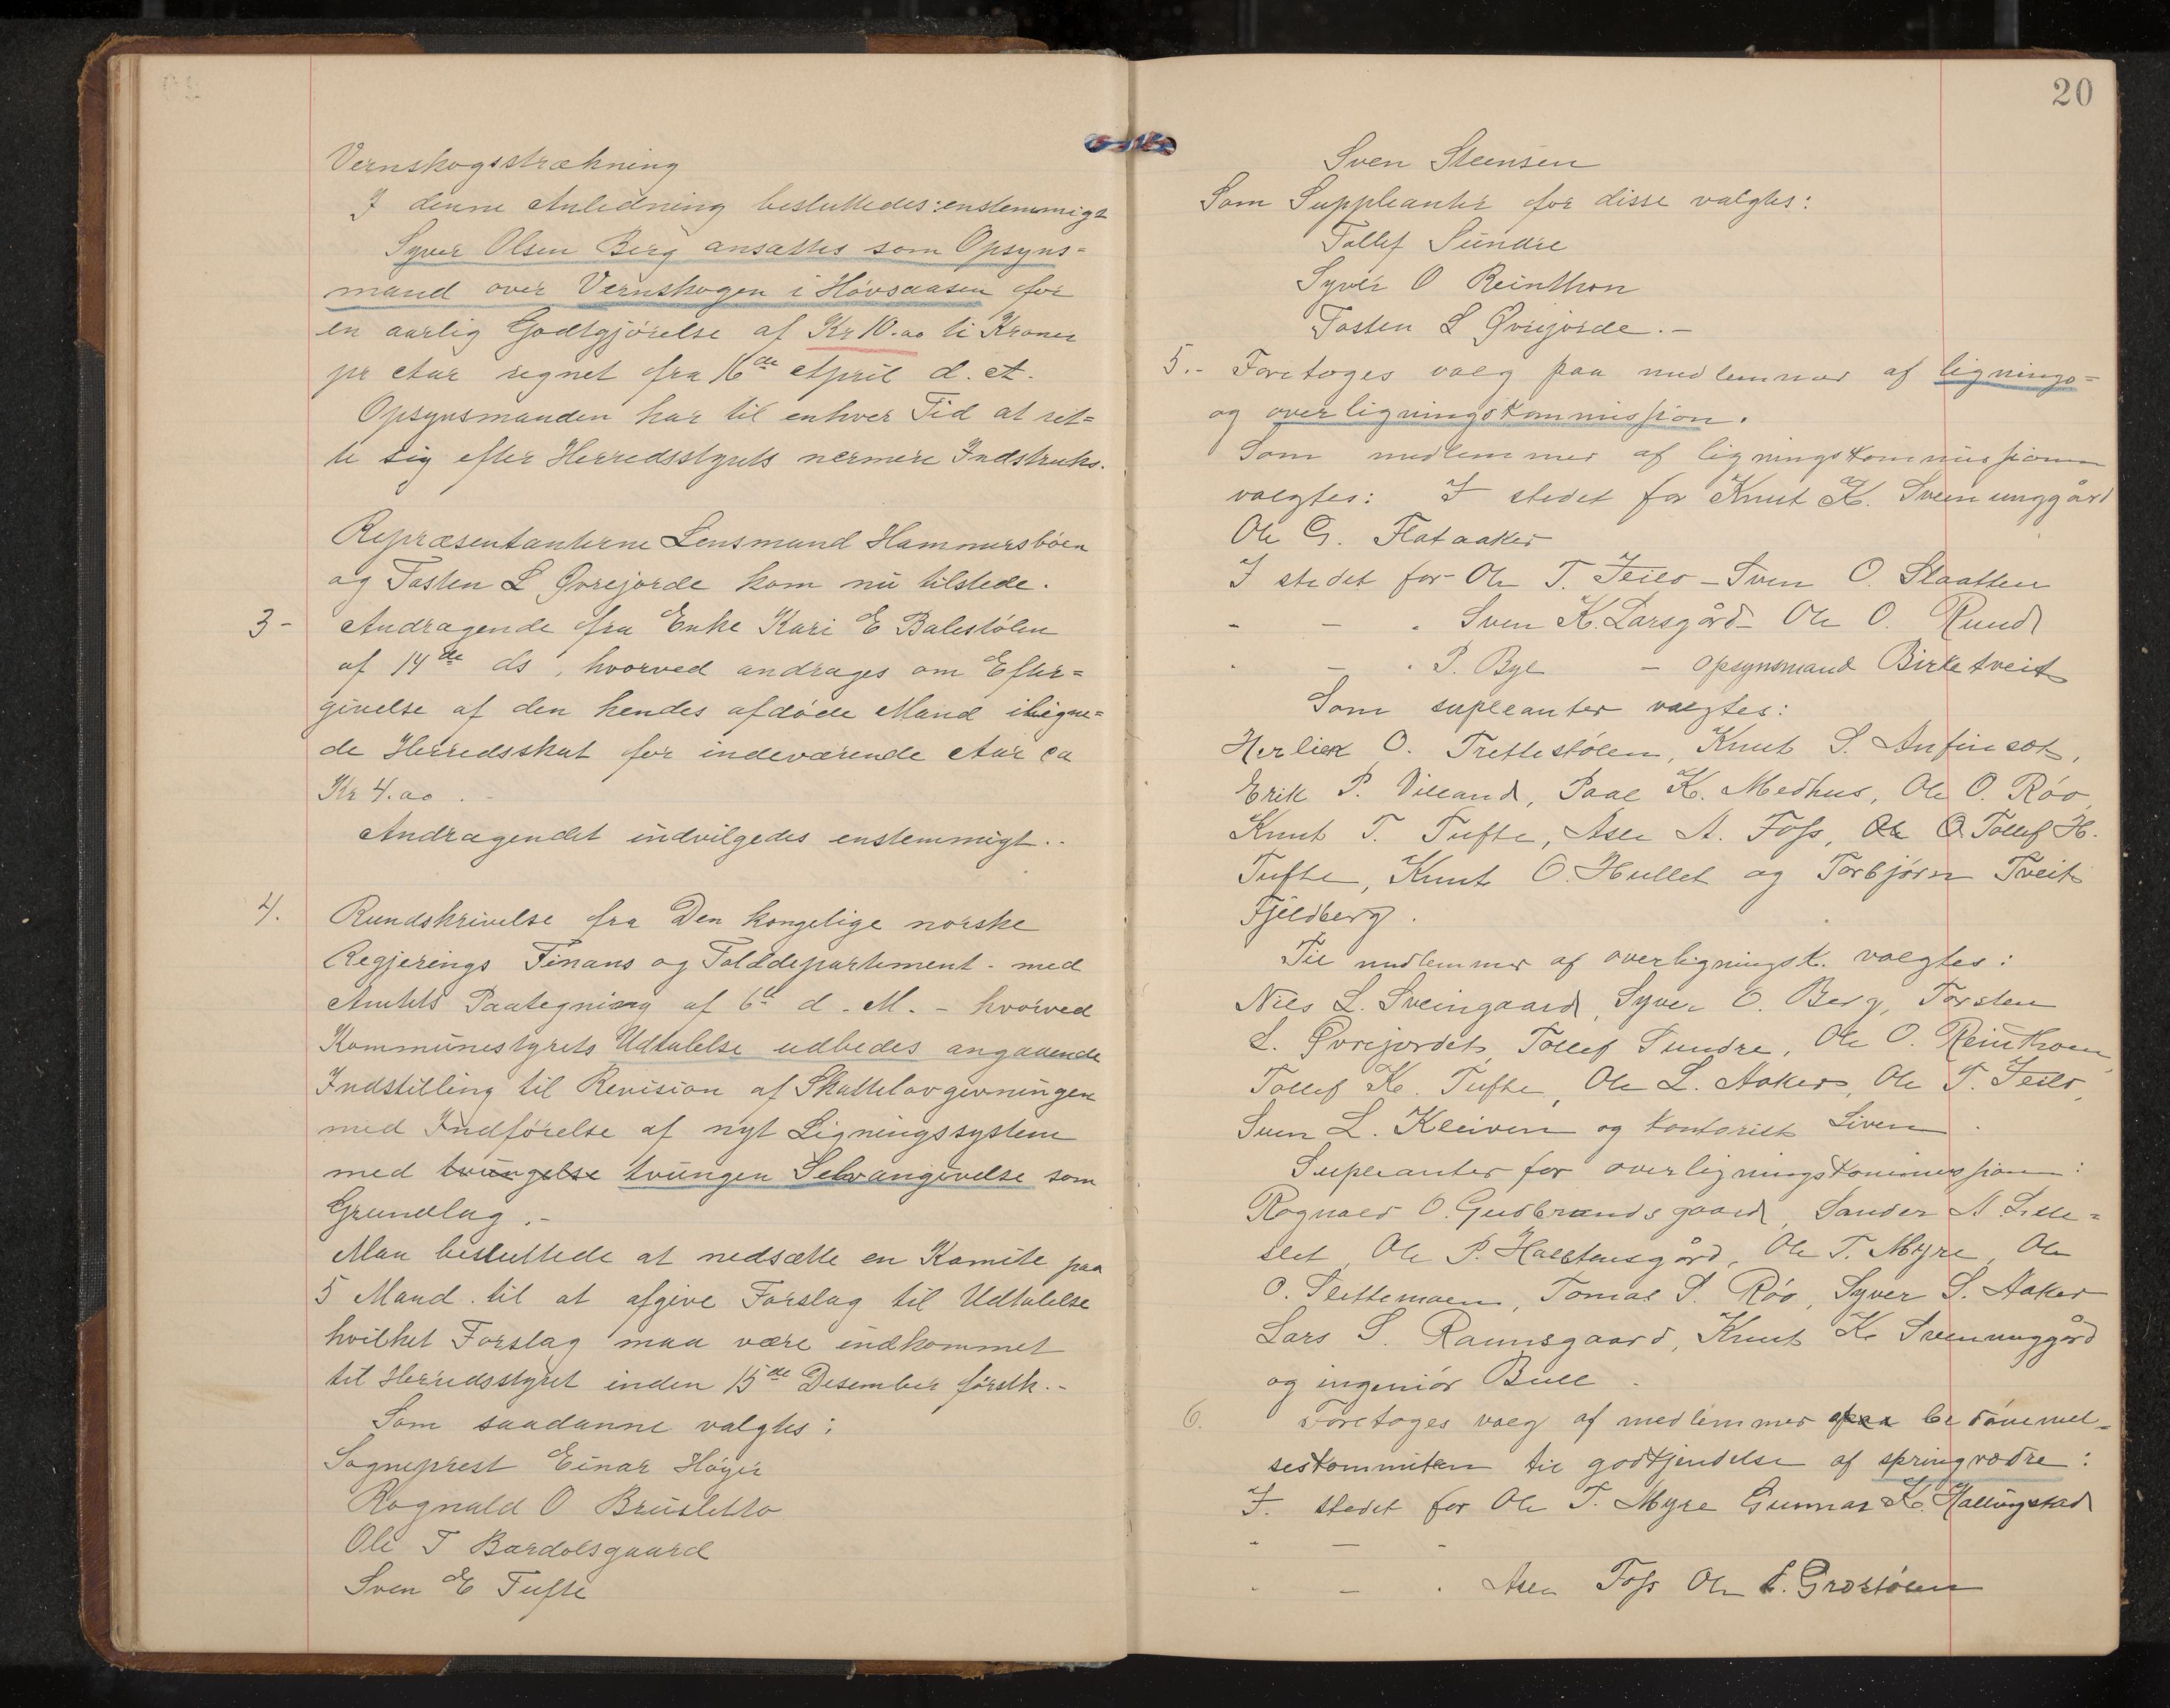 Vernskogsstrækning
I denne Anledning besluttedes: enstemmigt
Syver Olsen Berg ansattes som Opsyns=
mand over Vernskogen i Hovsaasen for
en aarlig Godtgjørelse af Kr 10.00 ti Kroner
pr Aar regnet fra 16de April d. A.
Opsynsmanden har til enhver Tid at ret=
te sig efter Herredsstyrets nermere Indstruks.
Repræsentanterne Lensmand Hammersbøen
og Tosten L Øvrejorde kom nu tilstede.
3- Andragende fra Enke Kari E Balestølen
af 14de ds, hvorved andrages om Efter=
givelse af den hendes afdøde Mand iligne=
de Herredsskat for indeværende Aar ca
Kr 4.00.-
Andragendet indvilgedes enstemmigt..
4. Rundskrivelse fra Den kongelige norske
Regjerings Finans og Tolddepartement - med
Amtets Paategning af 6te d. M. - hvorved
Kommunestyrets Udtalelse udbedes angaaende
Indstilling til Revision af Skattelovgivningen
med Indførelse af nyt Ligningssystem
med tvungelse tvungen Selvangivelse som
Grundlag.-
Man besluttede at nedsætte en Komite paa
5 Mand til at afgive Forslag til Udtalelse
hvilket Forslag maa være indkommet
til Herredsstyret inden 15de Desember førstk.-
Som saadanne valgtes:
Sogneprest Einar Høyer
Rognald O Brusletto
Ole T Bardolsgaard
Sven E Tufte
20
Sven Steensen
Som Suppleanter for disse valgtes:
Tollef Sundre
Syver O Reinthon
Tosten L Øvrejorde.-
5.- Foretoges valg paa medlemmer af lignings=
og overligningskommission.
Som medlemmer af ligningskommissionen
valgtes: I stedet for Knut K. Svenunggård
Ole G. Flataaker
I stedet for Ole T. Jeilo - Sven O. Slaatten
- - - Sven K. Larsgård - Ole O. Rund
- - - P. Byl - opsynsmand Birketveit
Som supleanter valgtes:
Herliek O. Trettestølen, Knut S. Anfinset,
Erik P. Villand, Paal K. Medhus, Ole O. Røo,
Knut T. Tufte, Asle A. Foss, Ole O. Tollef H.
Tufte, Knut O. Hullet og Torbjørn Tveit
Fjeldberg.
Til medlemmer af overligningsk. valgtes:
Nils L. Sveingaard, Syver O. Berg, Torsten
L. Øvrejordet, Tollef Sundre, Ole O. Reinthoen,
Tollef K. Tufte, Ole L. Aaker, Ole T. Jeilo,
Sven L. Kleiven og kontorist Siven.
Supleanter for overligningskommissionen:
Rognald O. Gudbrandsgaard, Sander A
slet, Ole P. Hallstensgård, Ole T. Myre, Ole
O. Slettemoen, Tomas P. Røo, Syver S. Aaker
Lars S. Raunsgaard, Knut K. Svenunggård
og ingeniør Bull.
6. Foretoges valg af medlemmer bedømmel=
seskommiteen til godkjendelse af springvædre:
I. stedet for Ole T. Myre Gunnar K. Hallingstad
- - -
- - - Asle Foss Ole L. Grøstølen